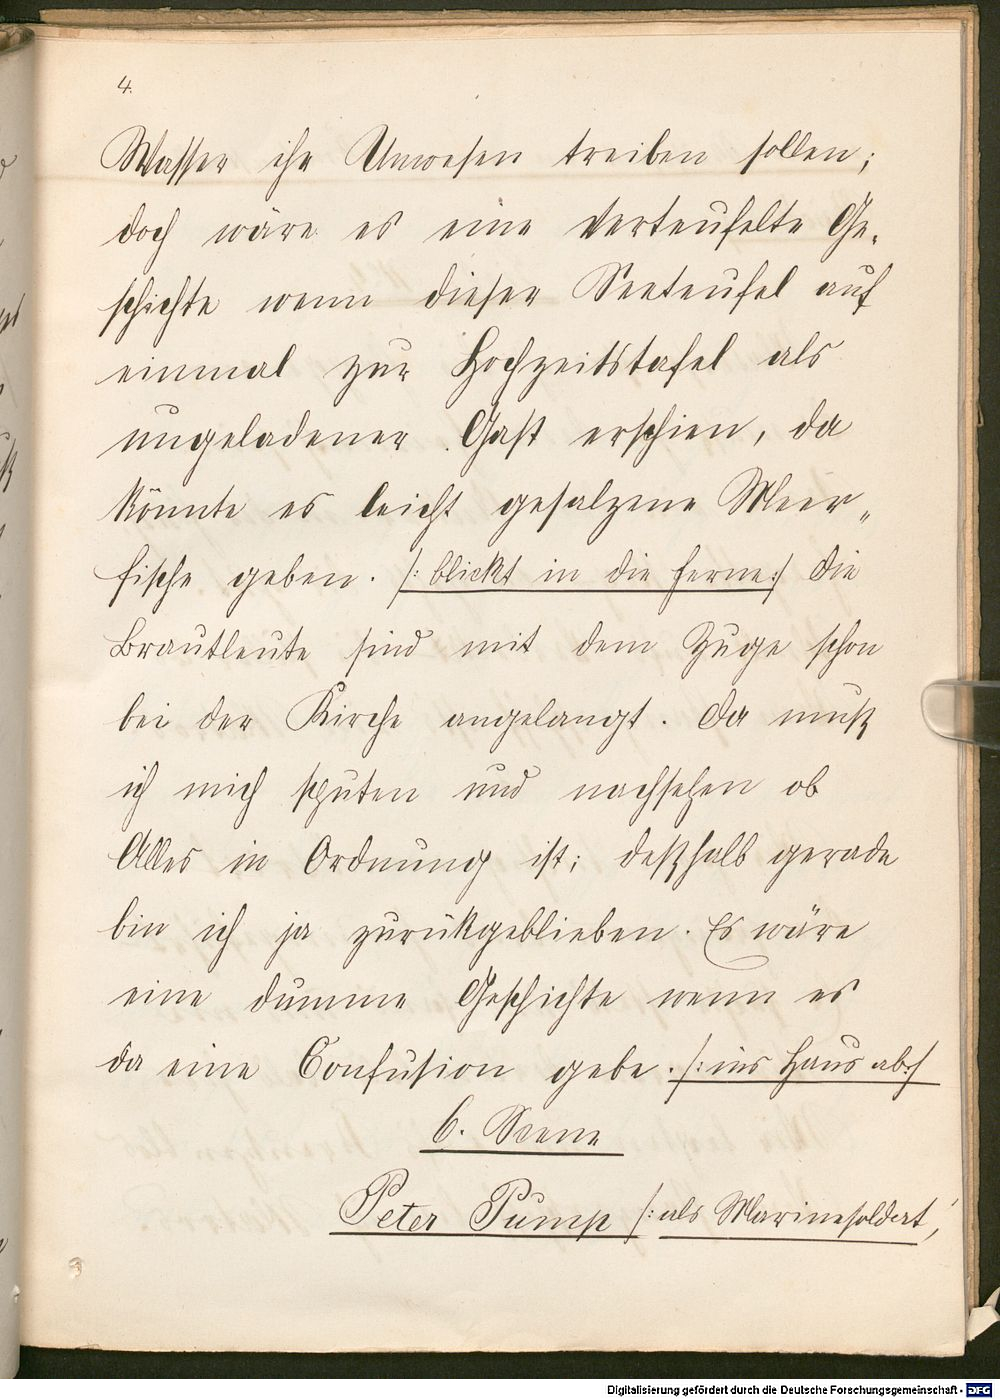 4.
Wasser ihr Unwesen treiben sollen;
doch wäre es eine verteufelte Ge-
schichte wenn dieser Seeteufel auf
einmal zur Hochzeitstafel als
ungeladener Gast erschien, da
könnte es leicht gesalzene Meer„
fische geben. /: blickt in die Ferne :/ Die
Brautleute sind mit dem Zuge schon
bei der Kirche angelangt. Da muß
ich mich sputen und nachsehen ob
Alles in Ordnung ist; deßhalb gerade
bin ich ja zurükgeblieben. Es wäre
eine dumme Geschichte wenn es
da eine Confusion gebe. /: ins Haus ab :/
6. Scene
Peter Pump /: als Marinesoldat,
Digitalisierung gefördert durch die Deutsche Forschungsgemeinschaft - DFG